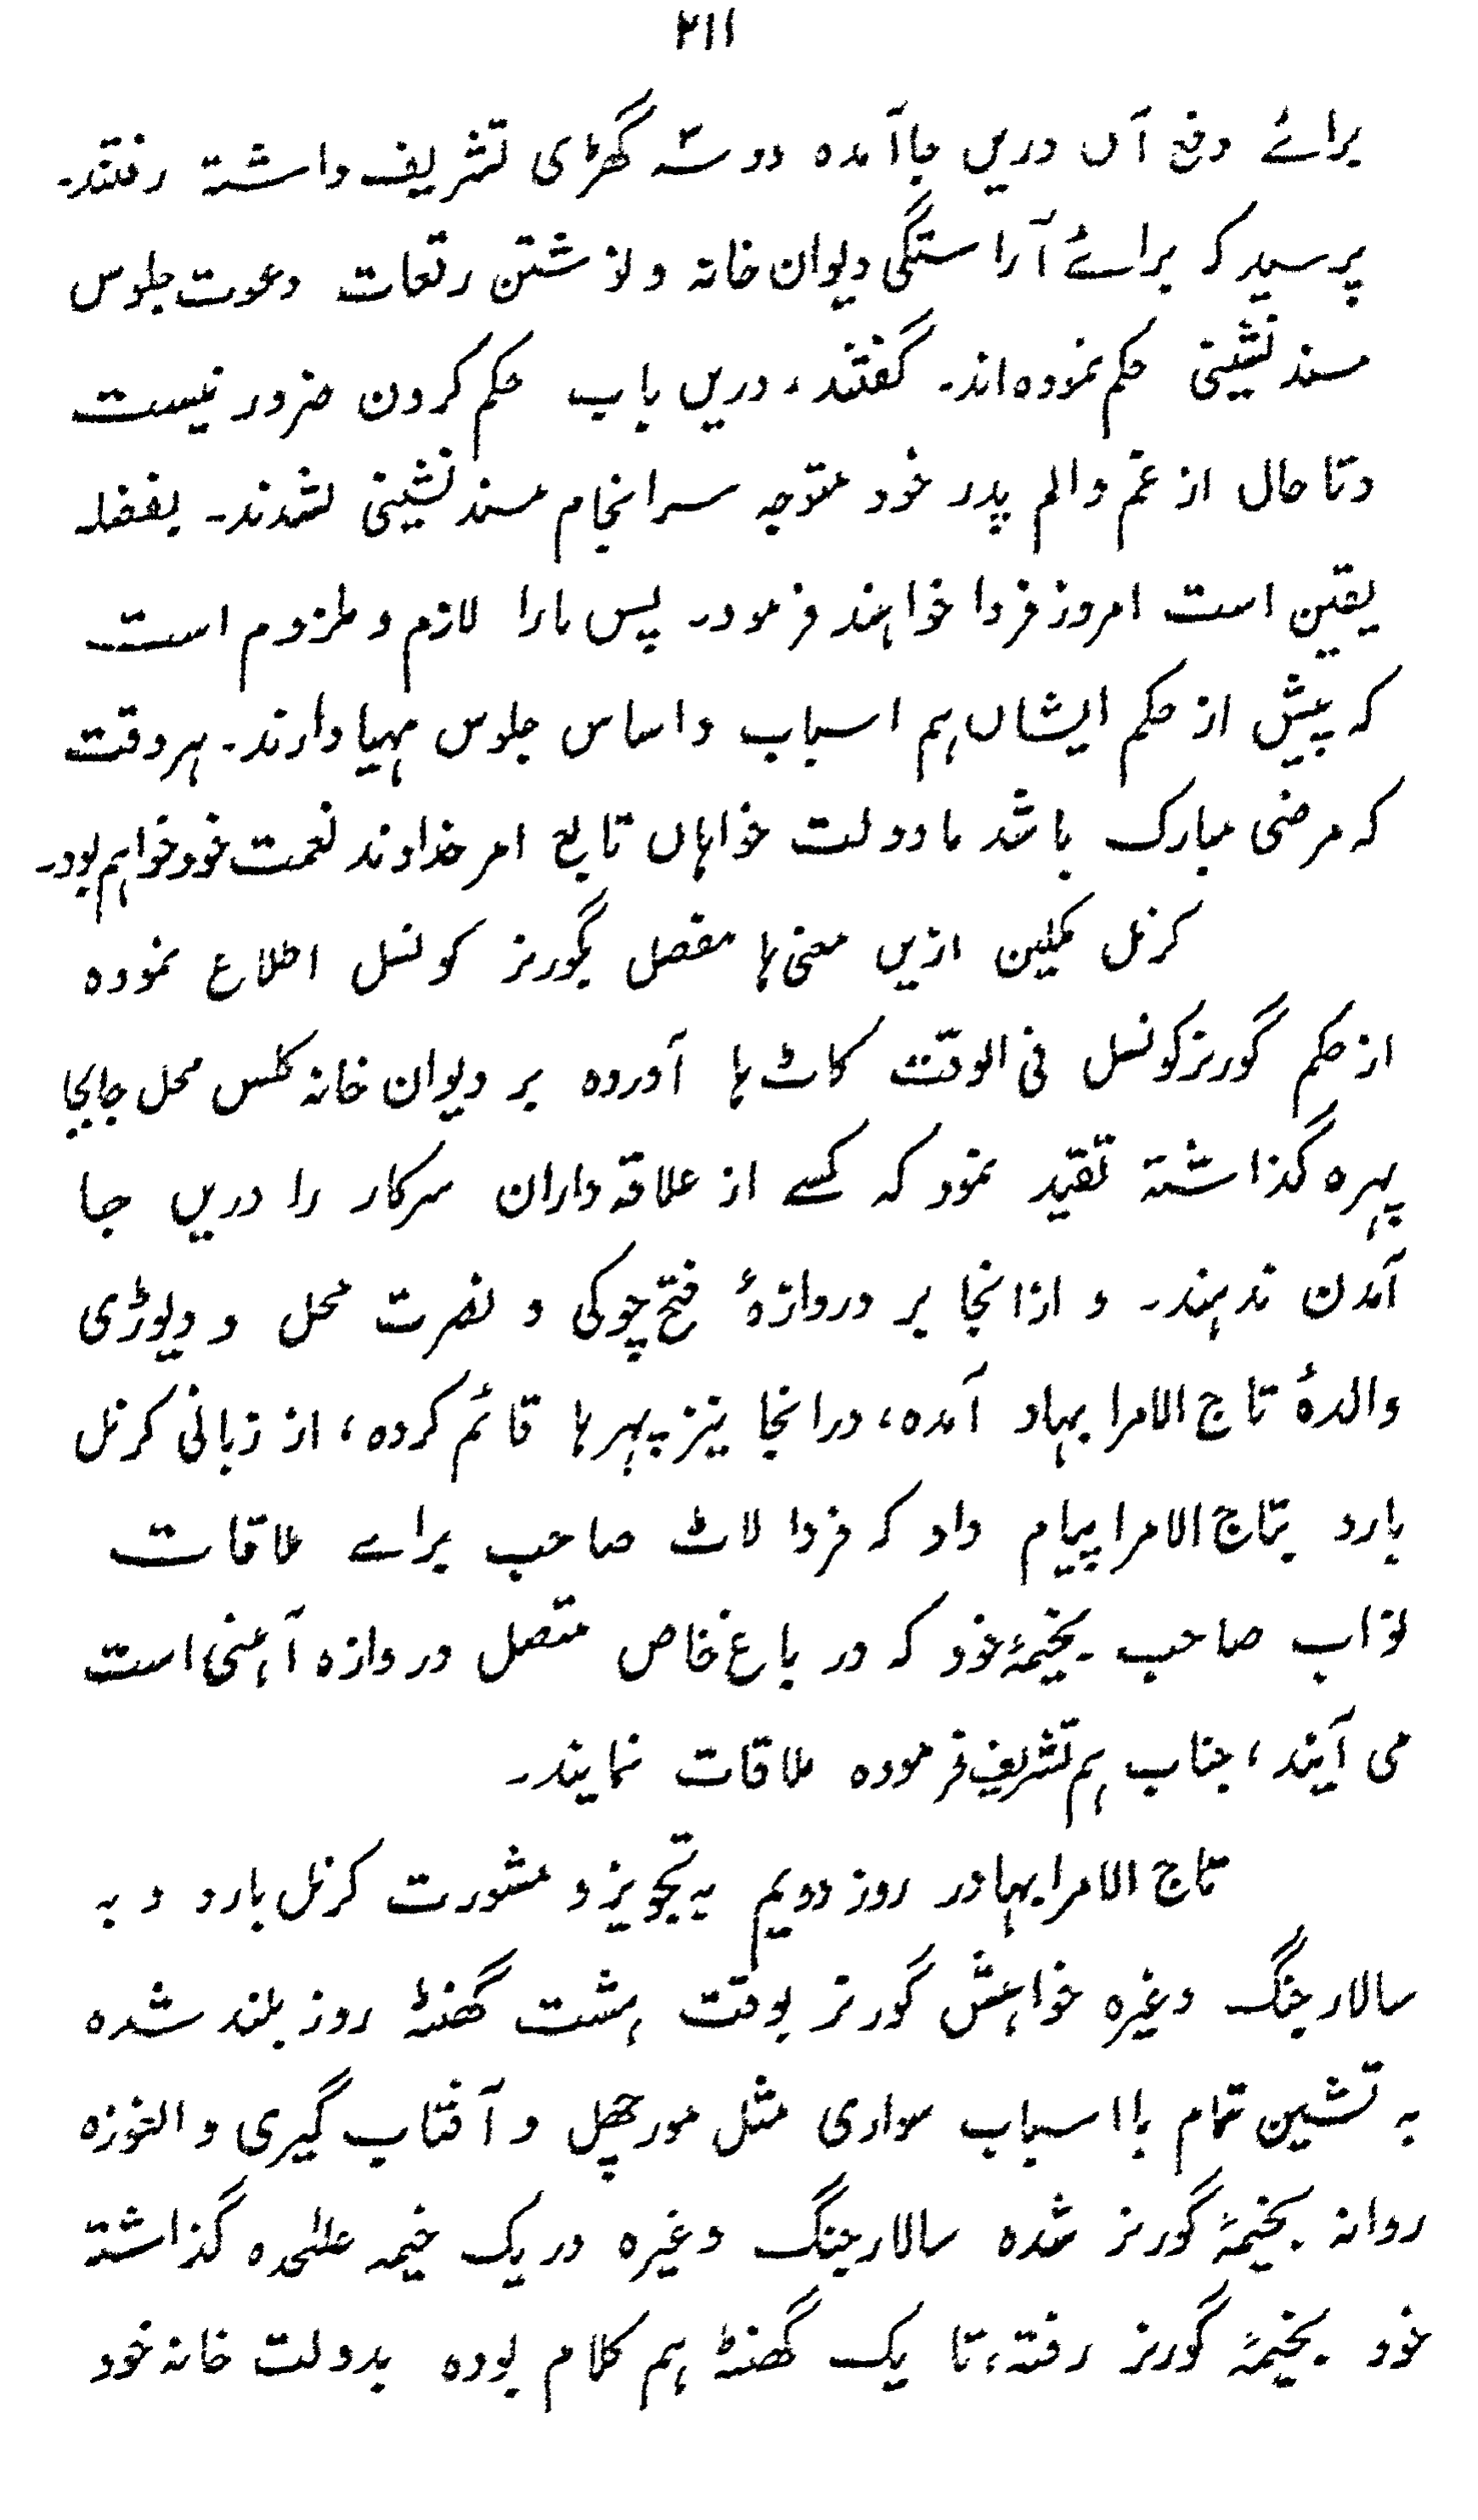 ۲۱۱
برائے دفع آں دریں جا آمدہ دو سَہ گھڑی تشریف داشتہ رفتند۔
پرسید کہ برائے آراستگی دیوان خانہ و نوشتن رقعات دعوت جلوس
مسند نشینی حکم نمودہ اند۔ گفتند، دریں باب حکم کردن ضرور نیست
وتا حال از غم و الم پدر خود متوجہ سرانجام مسند نشینی نشدند۔ بفضلہ
یقین است امروز فردا خواہند فرمود۔ پس مارا لازم و ملزوم است
کہ پیش از حکم ایشاں ہم اسباب و اساس جلوس مہیا دارند۔ ہر وقت
کہ مرضی مبارک باشد ما دولت خواہاں تابع امر خداوند نعمت خود خواہم بود۔
کرنل مکلین ازیں معنی ہا مفصل بگورنر کونسل اطلاع نمودہ
از حکم گورنر کونسل فی الوقت کاٹ ہا آوردہ بر دیوان خانہ کلس محل جابجا
پہرہ گذاشتہ تقید نمود کہ کسے از علاقہ داران سرکار را دریں جا
آمدن ندہند۔ و ازانجا بر دروازۂ فتح چوکی و نصرت محل و دیوڑی
والدۂ تاج الامرا بہاد آمدہ، درانجا نیز پہرہا قائم کردہ، از زبانی کرنل
بارد بتاج الامرا پیام داد کہ فردا لاٹ صاحب براے ملاقات
نواب صاحب بخیمۂ خود کہ در باغ خاص متصل دروازہ آہنی است
می آیند، جناب ہم تشریف فرمودہ ملاقات نمایند۔
تاج الامرا بہادر روز دویم بہ تجویز و مشورت کرنل بارد و بہ
سالار جنگ وغیرہ خواہش گورنر بوقت ہشت گھنٹہ روز بلند شدہ
بہ تشین تمام با اسباب سواری مثل مورچھل و آفتاب گیری و الغوزہ
روانہ بخیمۂ گورنر شدہ سالار جنگ وغیرہ در یک خیمہ علٰحدہ گذاشتہ
خود بخیمۂ گورنر رفتہ، تا یک گھنٹہ ہم کلام بودہ بدولت خانہ خود